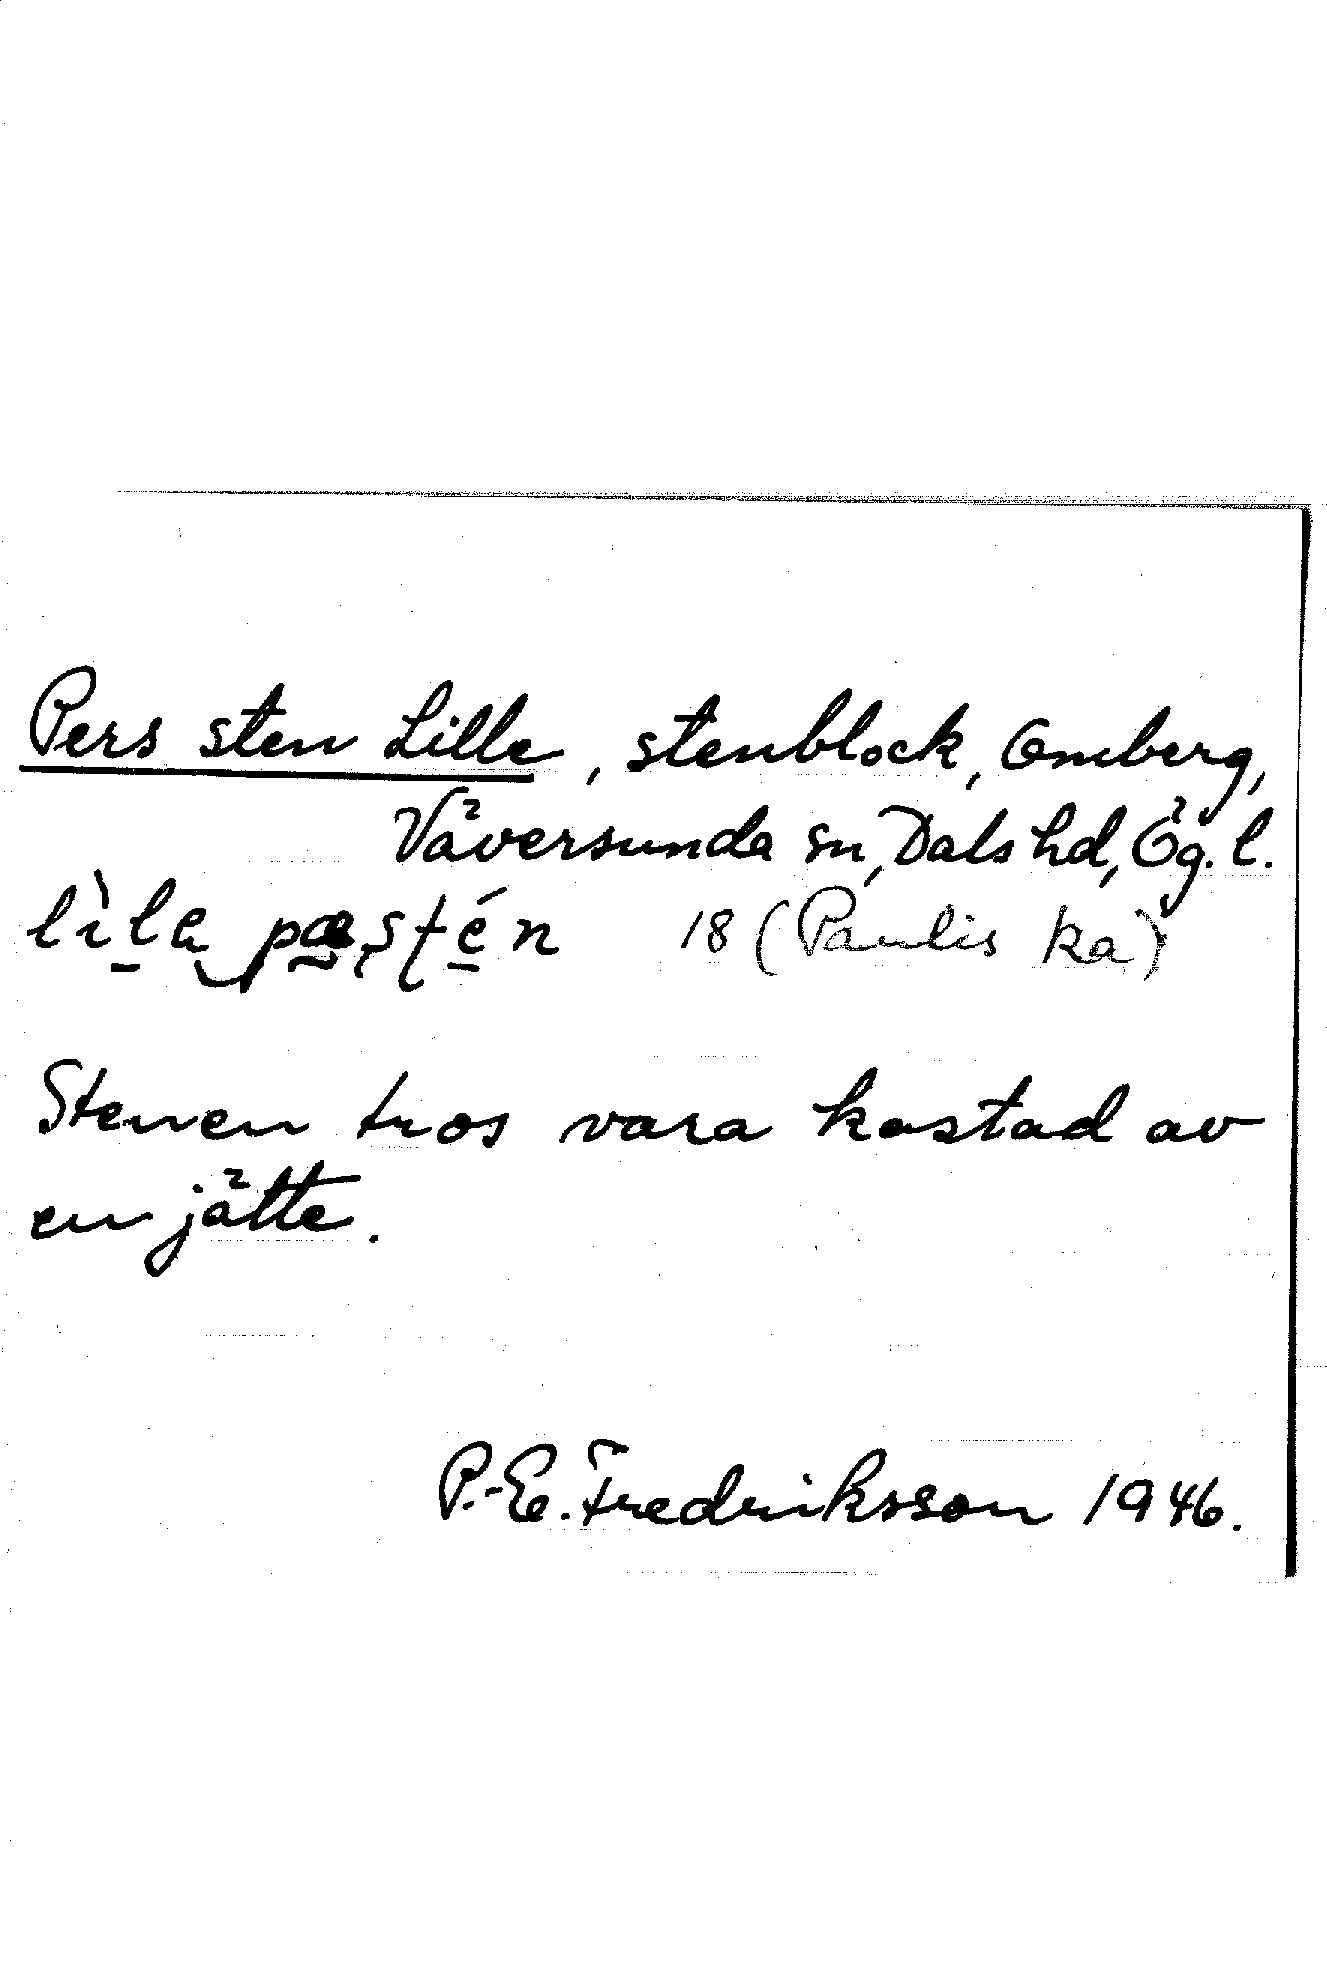 Pers sten Lille, stenblock, Omberg,
Väversunda sn, Dals hd, Ög. l.
lìla pæsten 18 (Paulis ka)
Stenen tros vara kastad av
en jätte.
P.-E. Fredriksson 1946.